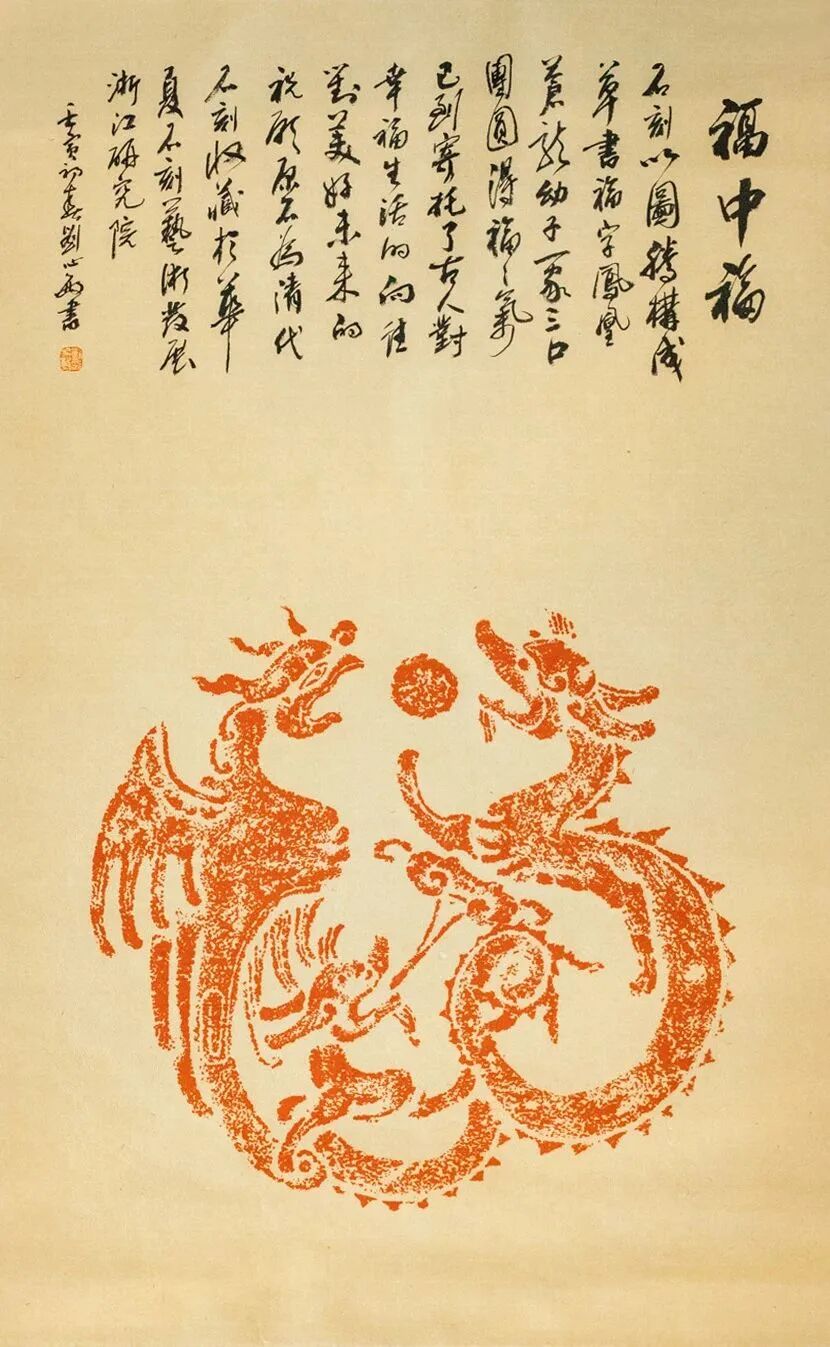 福中福
石刻以圖騰構成
草書福字鳳凰
蒼龍幼子一家三口
團圓得福々氣
已到寄托了古人對
幸福生活的向往
對美好未来的
祝願原石為清代
石刻收藏於華
夏石刻藝術發展
浙江研究院
壬寅初春劉書